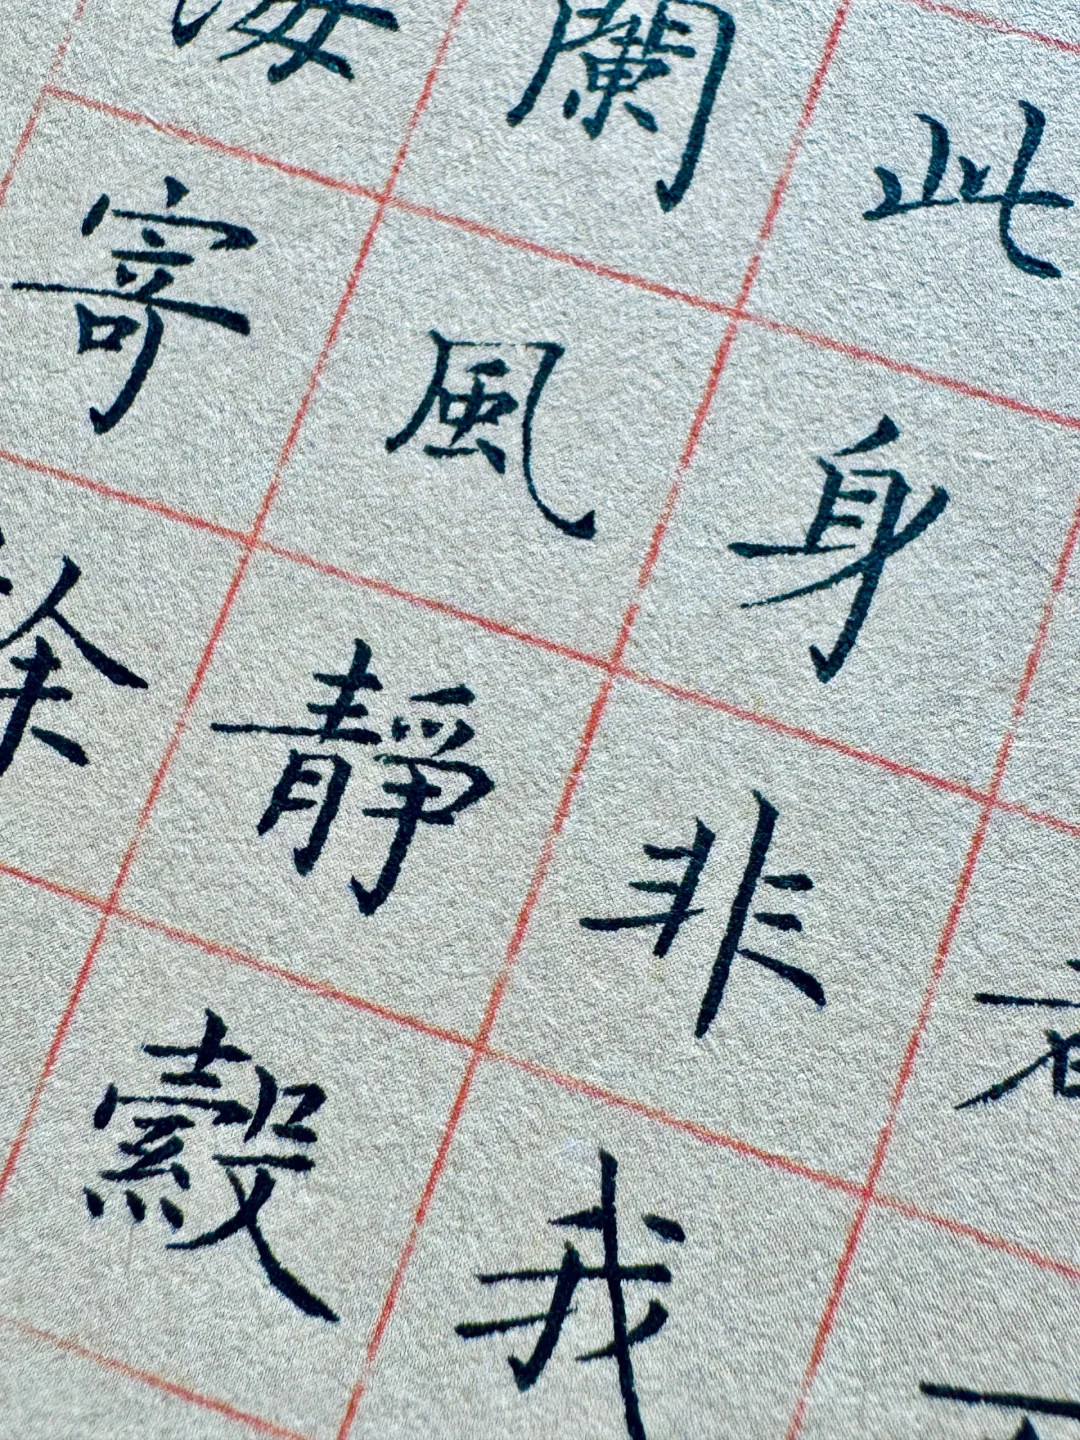 此身非我
闌風靜縠
海寄餘